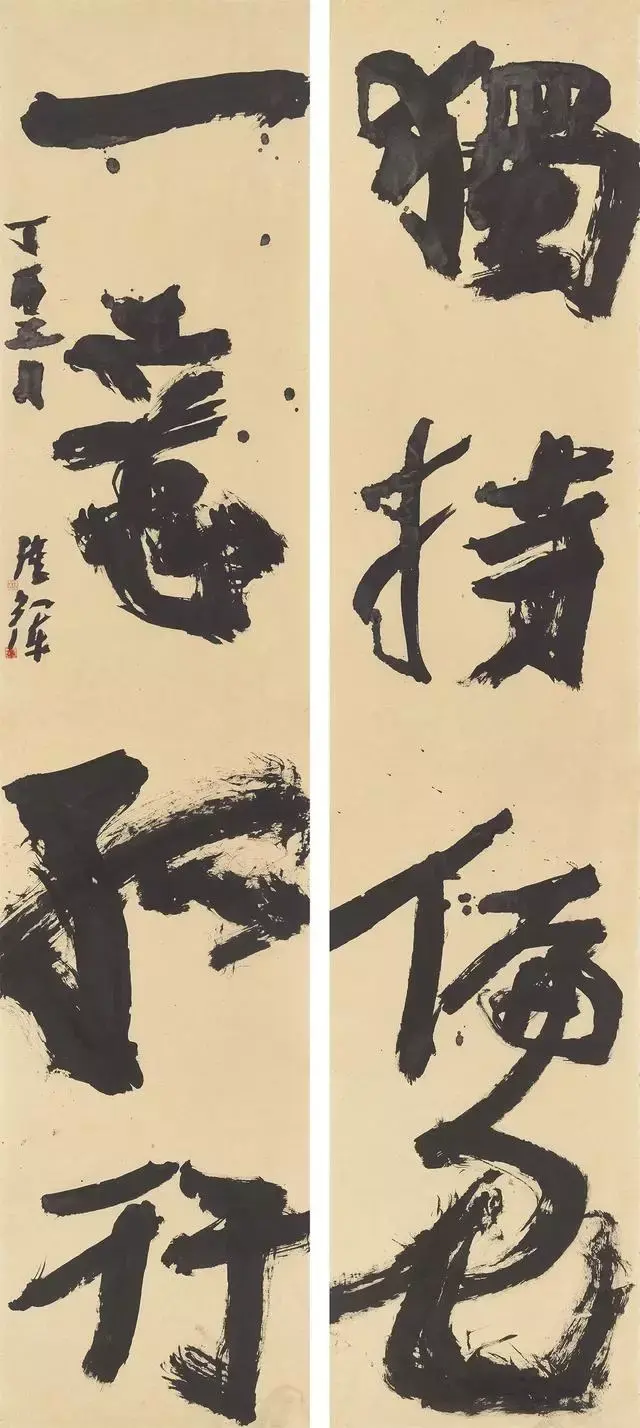 獨持偏見
一意孤行
丁酉五月